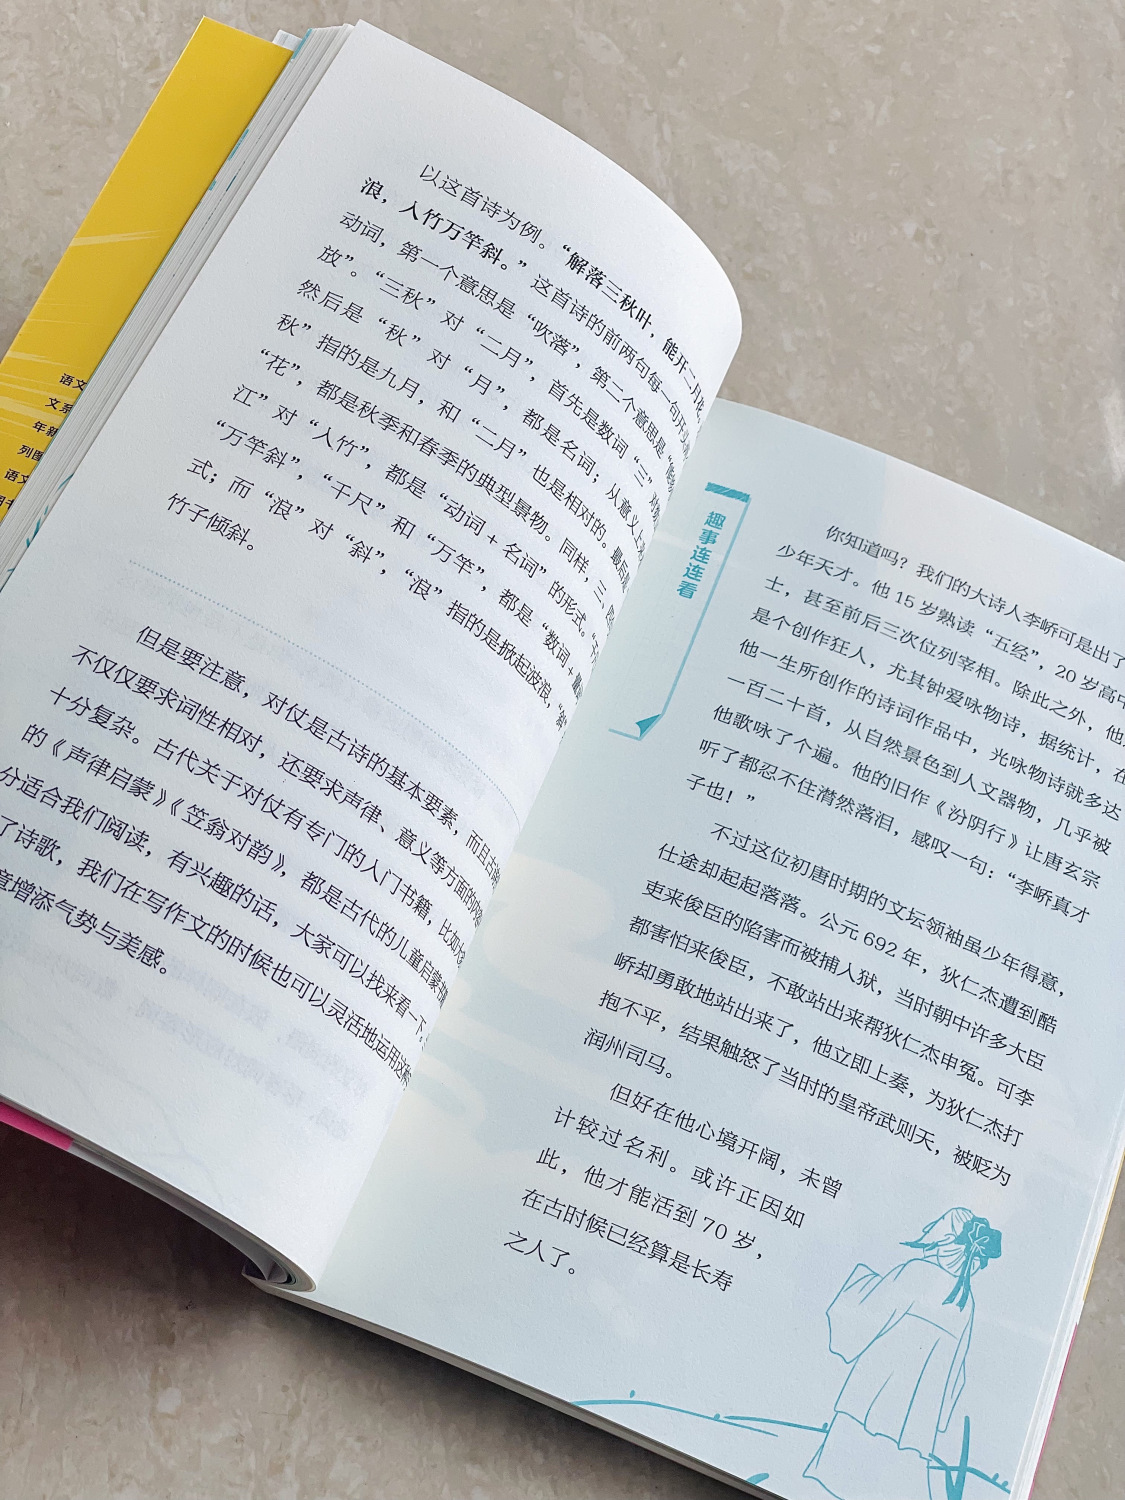 以这首诗为例。“解落三秋叶，能开二月花
浪，人竹万竿斜。”这首诗的前两句每一句
动词，第一个意思是“吹落”，第二个意思是“能
放”。“三秋”对“二月”，首先是数词“三”对
然后是“秋”对“月”，都是名词；从意义上
秋”指的是九月，和“二月”也是相对的。最后
“花”，都是秋季和春季的典型景物。同样，三、
江”对“人竹”，都是“动词+名词”的形式。
“万竿斜”，“千尺”和“万竿”，都是“数词+
式；而“浪”对“斜”，“浪”指的是掀起波浪，
竹子倾斜。
但是要注意，对仗是古诗的基本要素，而且古
不仅仅要求词性相对，还要求声律、意义等方面的
十分复杂。古代关于对仗有专门的入门书籍，比如
的《声律启蒙》《笠翁对韵》，都是古代的儿童启蒙
分适合我们阅读，有兴趣的话，大家可以找来看一下。
了诗歌，我们在写作文的时候也可以灵活地运用这种
增添气势与美感。
趣事连连看
你知道吗？我们的大诗人李峤可是出了
少年天才。他15岁熟读“五经”，20岁高中
士，甚至前后三次位列宰相。除此之外，他
是个创作狂人，尤其钟爱咏物诗，据统计，在
他一生所创作的诗词作品中，光咏物诗就多达
一百二十首，从自然景色到人文器物，几乎被
他歌咏了个遍。他的旧作《汾阴行》让唐玄宗
听了都忍不住潸然落泪，感叹一句：“李峤真才
子也！”
不过这位初唐时期的文坛领袖虽少年得意，
仕途却起起落落。公元692年，狄仁杰遭到酷
吏来俊臣的陷害而被捕入狱，当时朝中许多大臣
都害怕来俊臣，不敢站出来帮狄仁杰申冤。可李
峤却勇敢地站出来了，他立即上奏，为狄仁杰打
抱不平，结果触怒了当时的皇帝武则天，被贬为
润州司马。
但好在他心境开阔，未曾
计较过名利。或许正因如
此，他才能活到70岁，
在古时候已经算是长寿
之人了。
语文
文系
年新
列图
语文